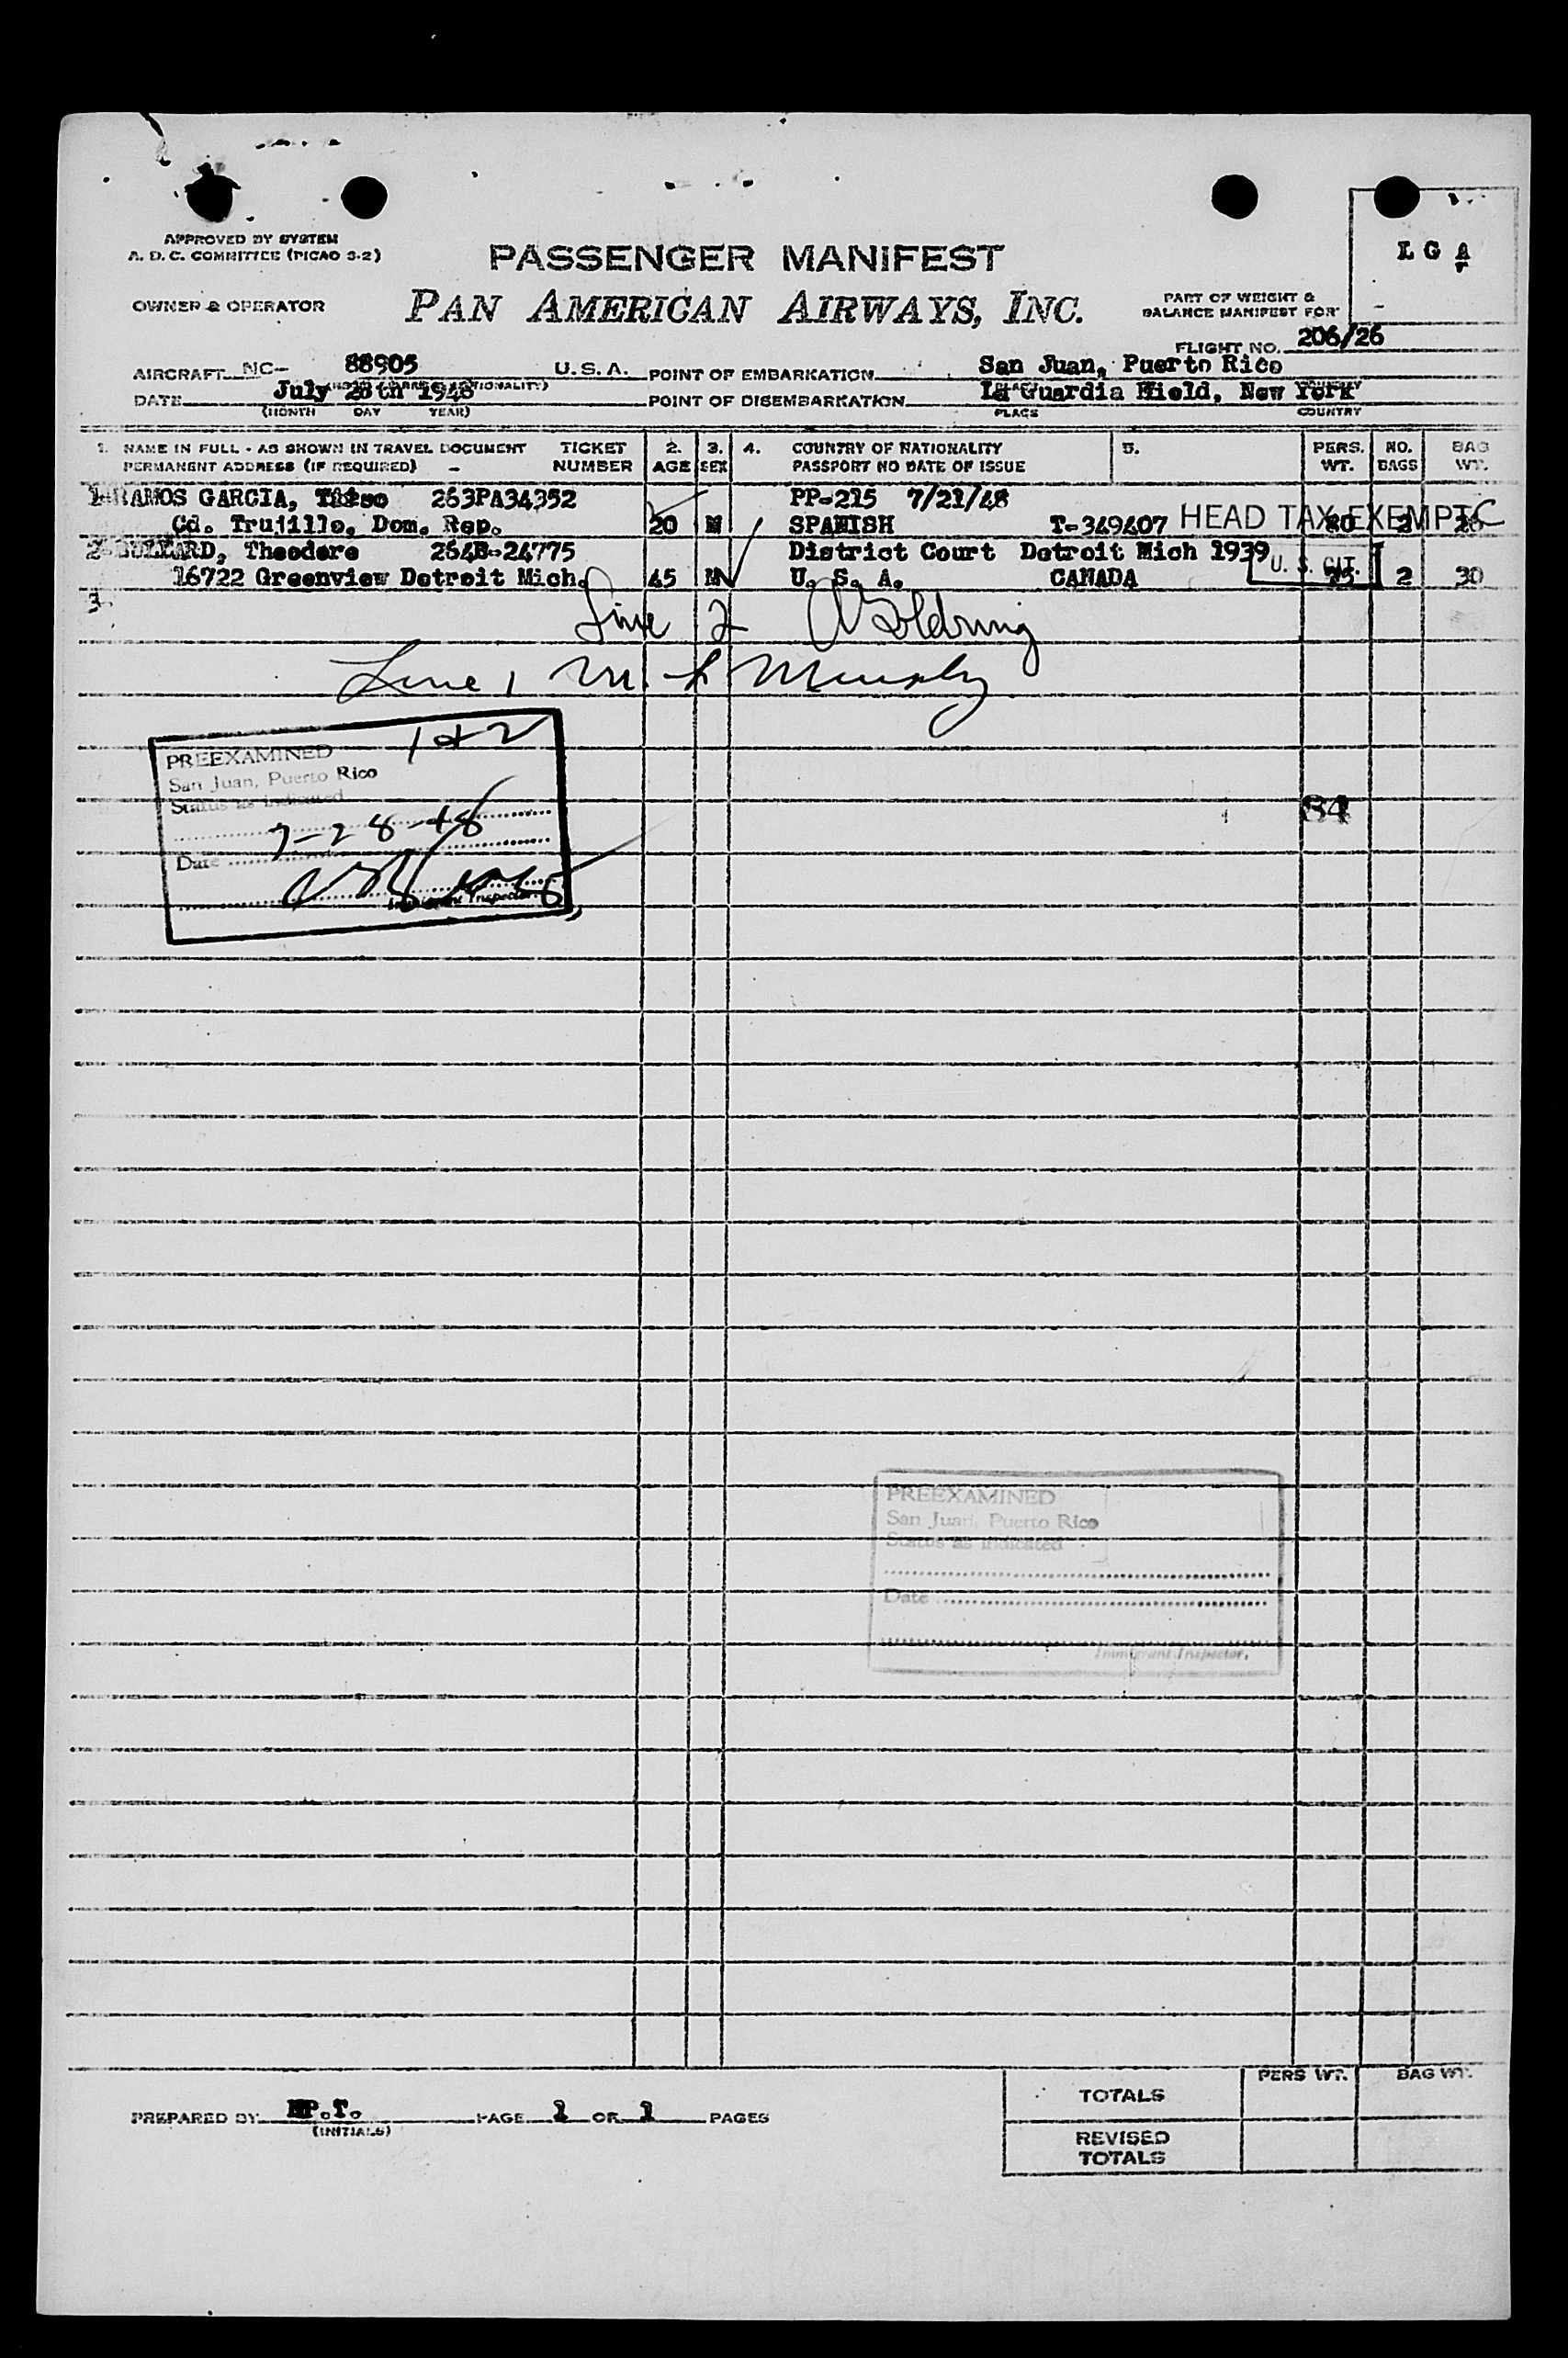 APPROVED BY SYSTEM
A. D. C. COMMITTEE (PICAO 3-2)
OWNER & OPERATOR
PASSENGER MANIFEST
PAN AMERICAN AIRWAYS, INC.
L G A
PART OF WEIGHT &
BALANCE MANIFEST FOR
FLIGHT NO. 206/26
AIRCRAFT NC- 88905 U.S.A. POINT OF EMBARKATION San Juan, Puerto Rico
DATE July 28th 1948 POINT OF DISEMBARKATION La Guardia Field, New York
(MONTH DAY YEAR) PLACE COUNTRY
1. NAME IN FULL - AS SHOWN IN TRAVEL DOCUMENT TICKET 2. 3. 4. COUNTRY OF NATIONALITY 5. PERS. NO. BAG
PERMANENT ADDRESS (IF REQUIRED) - NUMBER AGE SEX PASSPORT NO DATE OF ISSUE WT. BAGS WT.
1- RAMOS GARCIA, 263PA34352 PP-215 7/21/48
Cd. Trujillo, Dom. Rep. 20 M SPANISH T-349407 HEAD TAX EXEMPT C 80 2 26
2- BULLARD, Theodore 264B-24775 District Court Detroit Mich 1939
16722 Greenview Detroit Mich. 45 M U. S. A. CANADA U. S. CIT. 2 30
3-
Line 2 A Goldring
Line 1 M L Murphy
1 & 2
PREEXAMINED
San Juan, Puerto Rico
Status as indicated
Date 7-28-48
Immigrant Inspector.
84
PREEXAMINED
San Juan, Puerto Rico
Status as indicated
Date
Immigrant Inspector.
PERS WT. BAG WT.
TOTALS
PREPARED BY MP.T. PAGE 1 OF 1 PAGES
(INITIALS)
REVISED
TOTALS